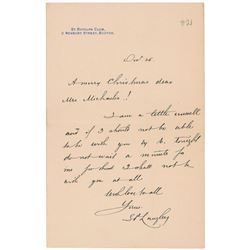 ST. BOTOLPH CLUB,
2 NEWBURY STREET, BOSTON.
Dec 25.
A merry Christmas dear
Mrs Michaelis!
I am a little unwell
and if I should not be able
to be with you by 6. tonight
do not wait a minute for
me for I shall not
ask you at all
with love to all
Yours